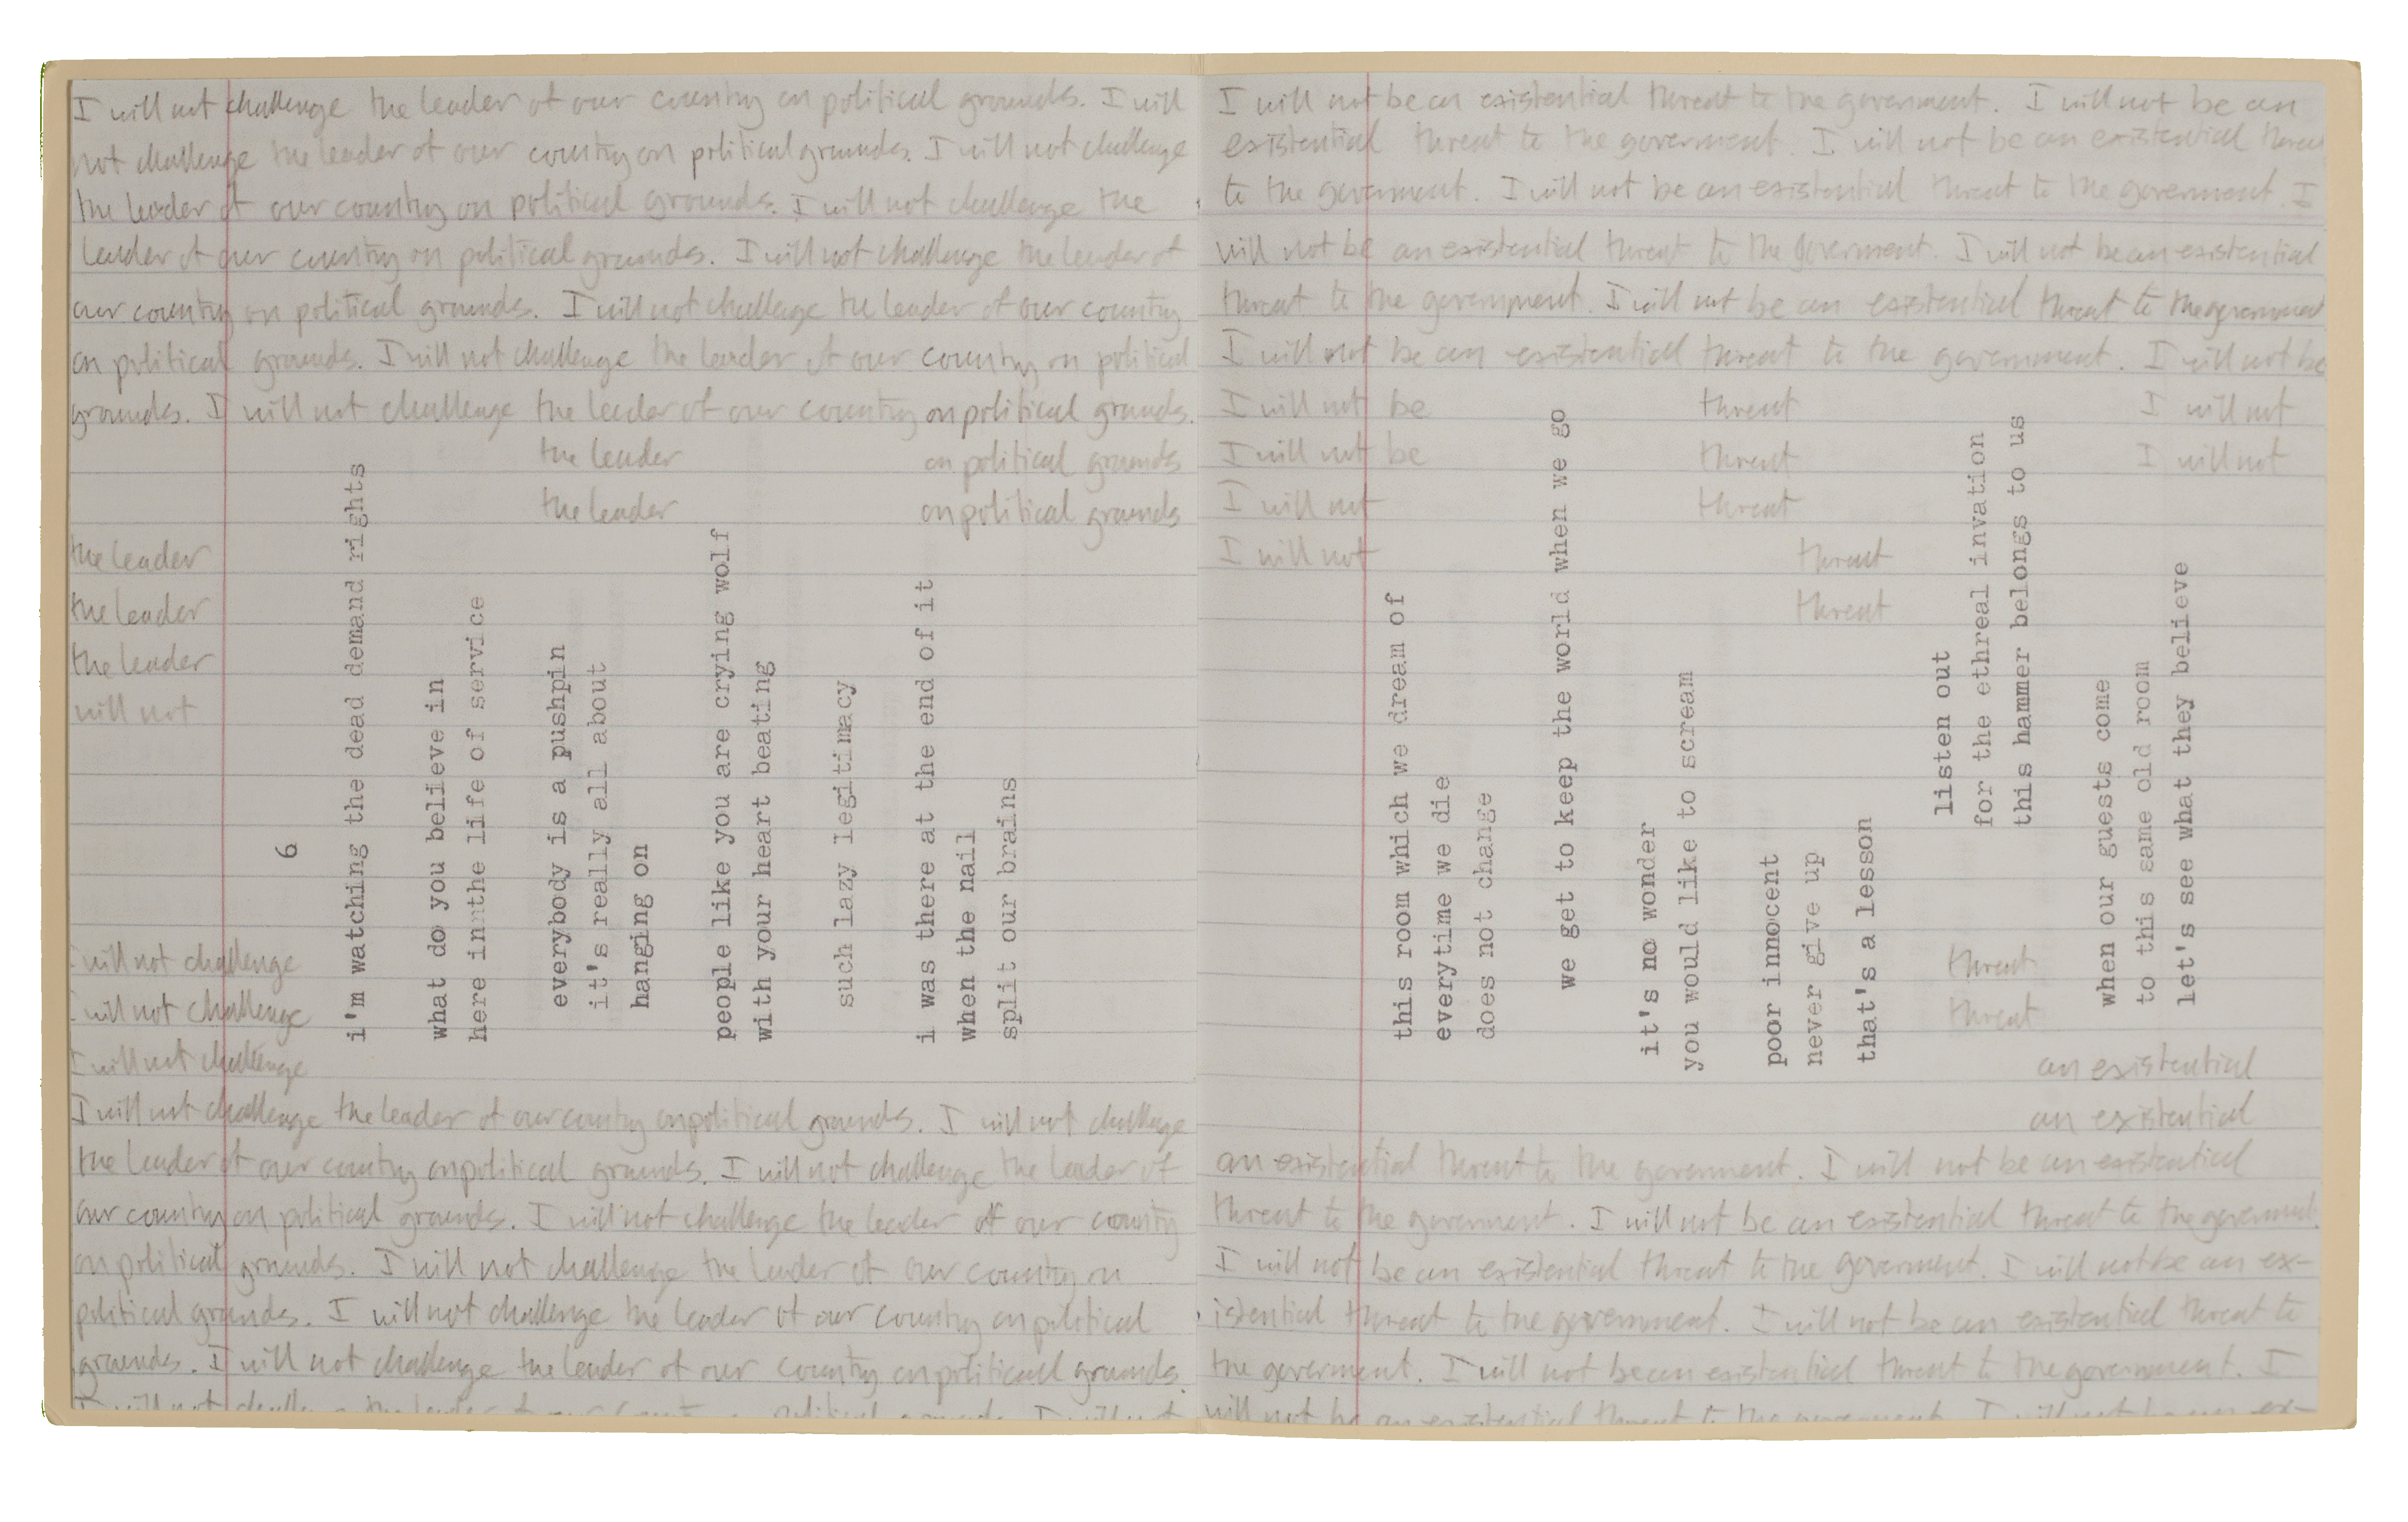 I will not challenge the leader of our country on political grounds. I will
not challenge the leader of our country on political grounds. I will not challenge
the leader of our country on political grounds. I will not challenge the
leader of our country on political grounds. I will not challenge the leader of
our country on political grounds. I will not challenge the leader of our country
on political grounds. I will not challenge the leader of our country on political
grounds. I will not challenge the leader of our country on political grounds.
the leader on political grounds
the leader on political grounds
the leader
the leader
the leader
will not
6
i'm watching the dead demand rights
what do you believe in
here innthe life of service
everybody is a pushpin
it's really all about
hanging on
people like you are crying wolf
with your heart beating
such lazy legitimacy
i was there at the end of it
when the nail
split our brains
I will not challenge
I will not challenge
I will not challenge
I will not challenge the leader of our country on political grounds. I will not challenge
the leader of our country on political grounds. I will not challenge the leader of
our country on political grounds. I will not challenge the leader of our country
on political grounds. I will not challenge the leader of our country on
political grounds. I will not challenge the leader of our country on political
grounds. I will not challenge the leader of our country on political grounds.
I will not challenge the leader of our country on political grounds. I will not
I will not be an existential threat to the goverment. I will not be an
existential threat to the goverment. I will not be an existential threat
to the goverment. I will not be an existential threat to the goverment. I
will not be an existential threat to the goverment. I will not be an existential
threat to the government. I will not be an existential threat to the government
I will not be an existential threat to the government. I will not be
I will not be threat I will not
I will not be threat I will not
I will not threat
I will not threat
threat
this room which we dream of
everytime we die
does not change
we get to keep the world when we go
it's no wonder
you would like to scream
poor innocent
never give up
that's a lesson
listen out
for the ethreal invation
this hammer belongs to us
when our guests come
to this same old room
let's see what they believe
threat
threat
an existential
an existential
an existential threat to the goverment. I will not be an existential
threat to the goverment. I will not be an existential threat to the goverment.
I will not be an existential threat to the goverment. I will not be an ex-
istential threat to the government. I will not be an existential threat to
the goverment. I will not be an existential threat to the government. I
will not be an existential threat to the government. I will not be an ex-